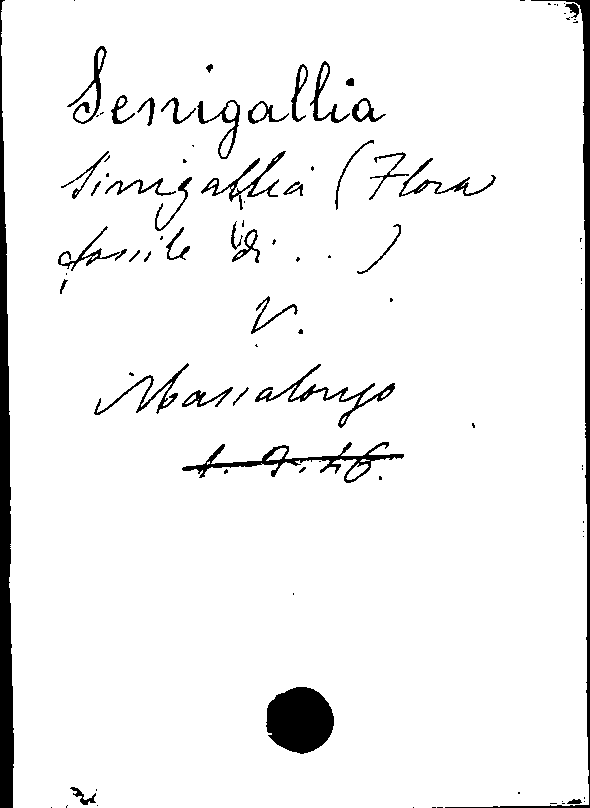 Senigallia
Sinigallia (Flora
fossile di . . )
V.
Massalongo